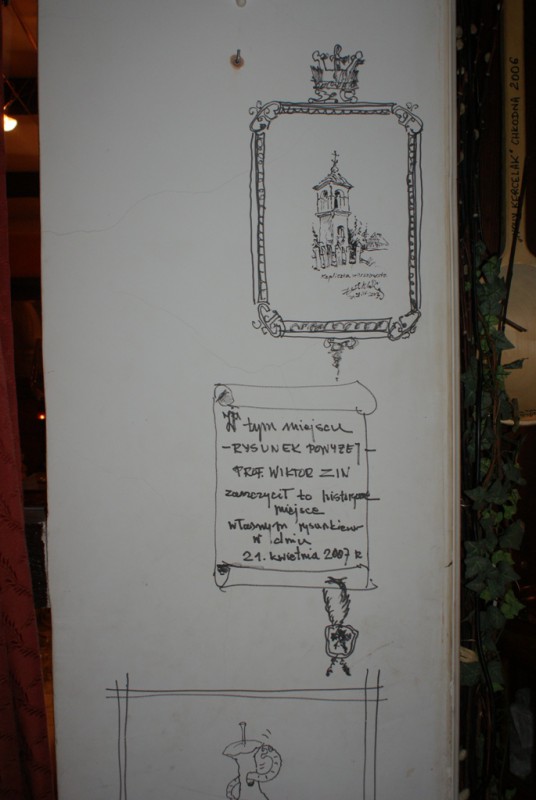 W tym miejscu
- RYSUNEK POWYŻEJ -
PROF. WIKTOR ZIN
zaszczycił to historyczne
miejsce
własnym rysunkiem
w dniu
21. kwietnia 2007 r.
"MAŁY KERCELAK" CHŁODNA 2006